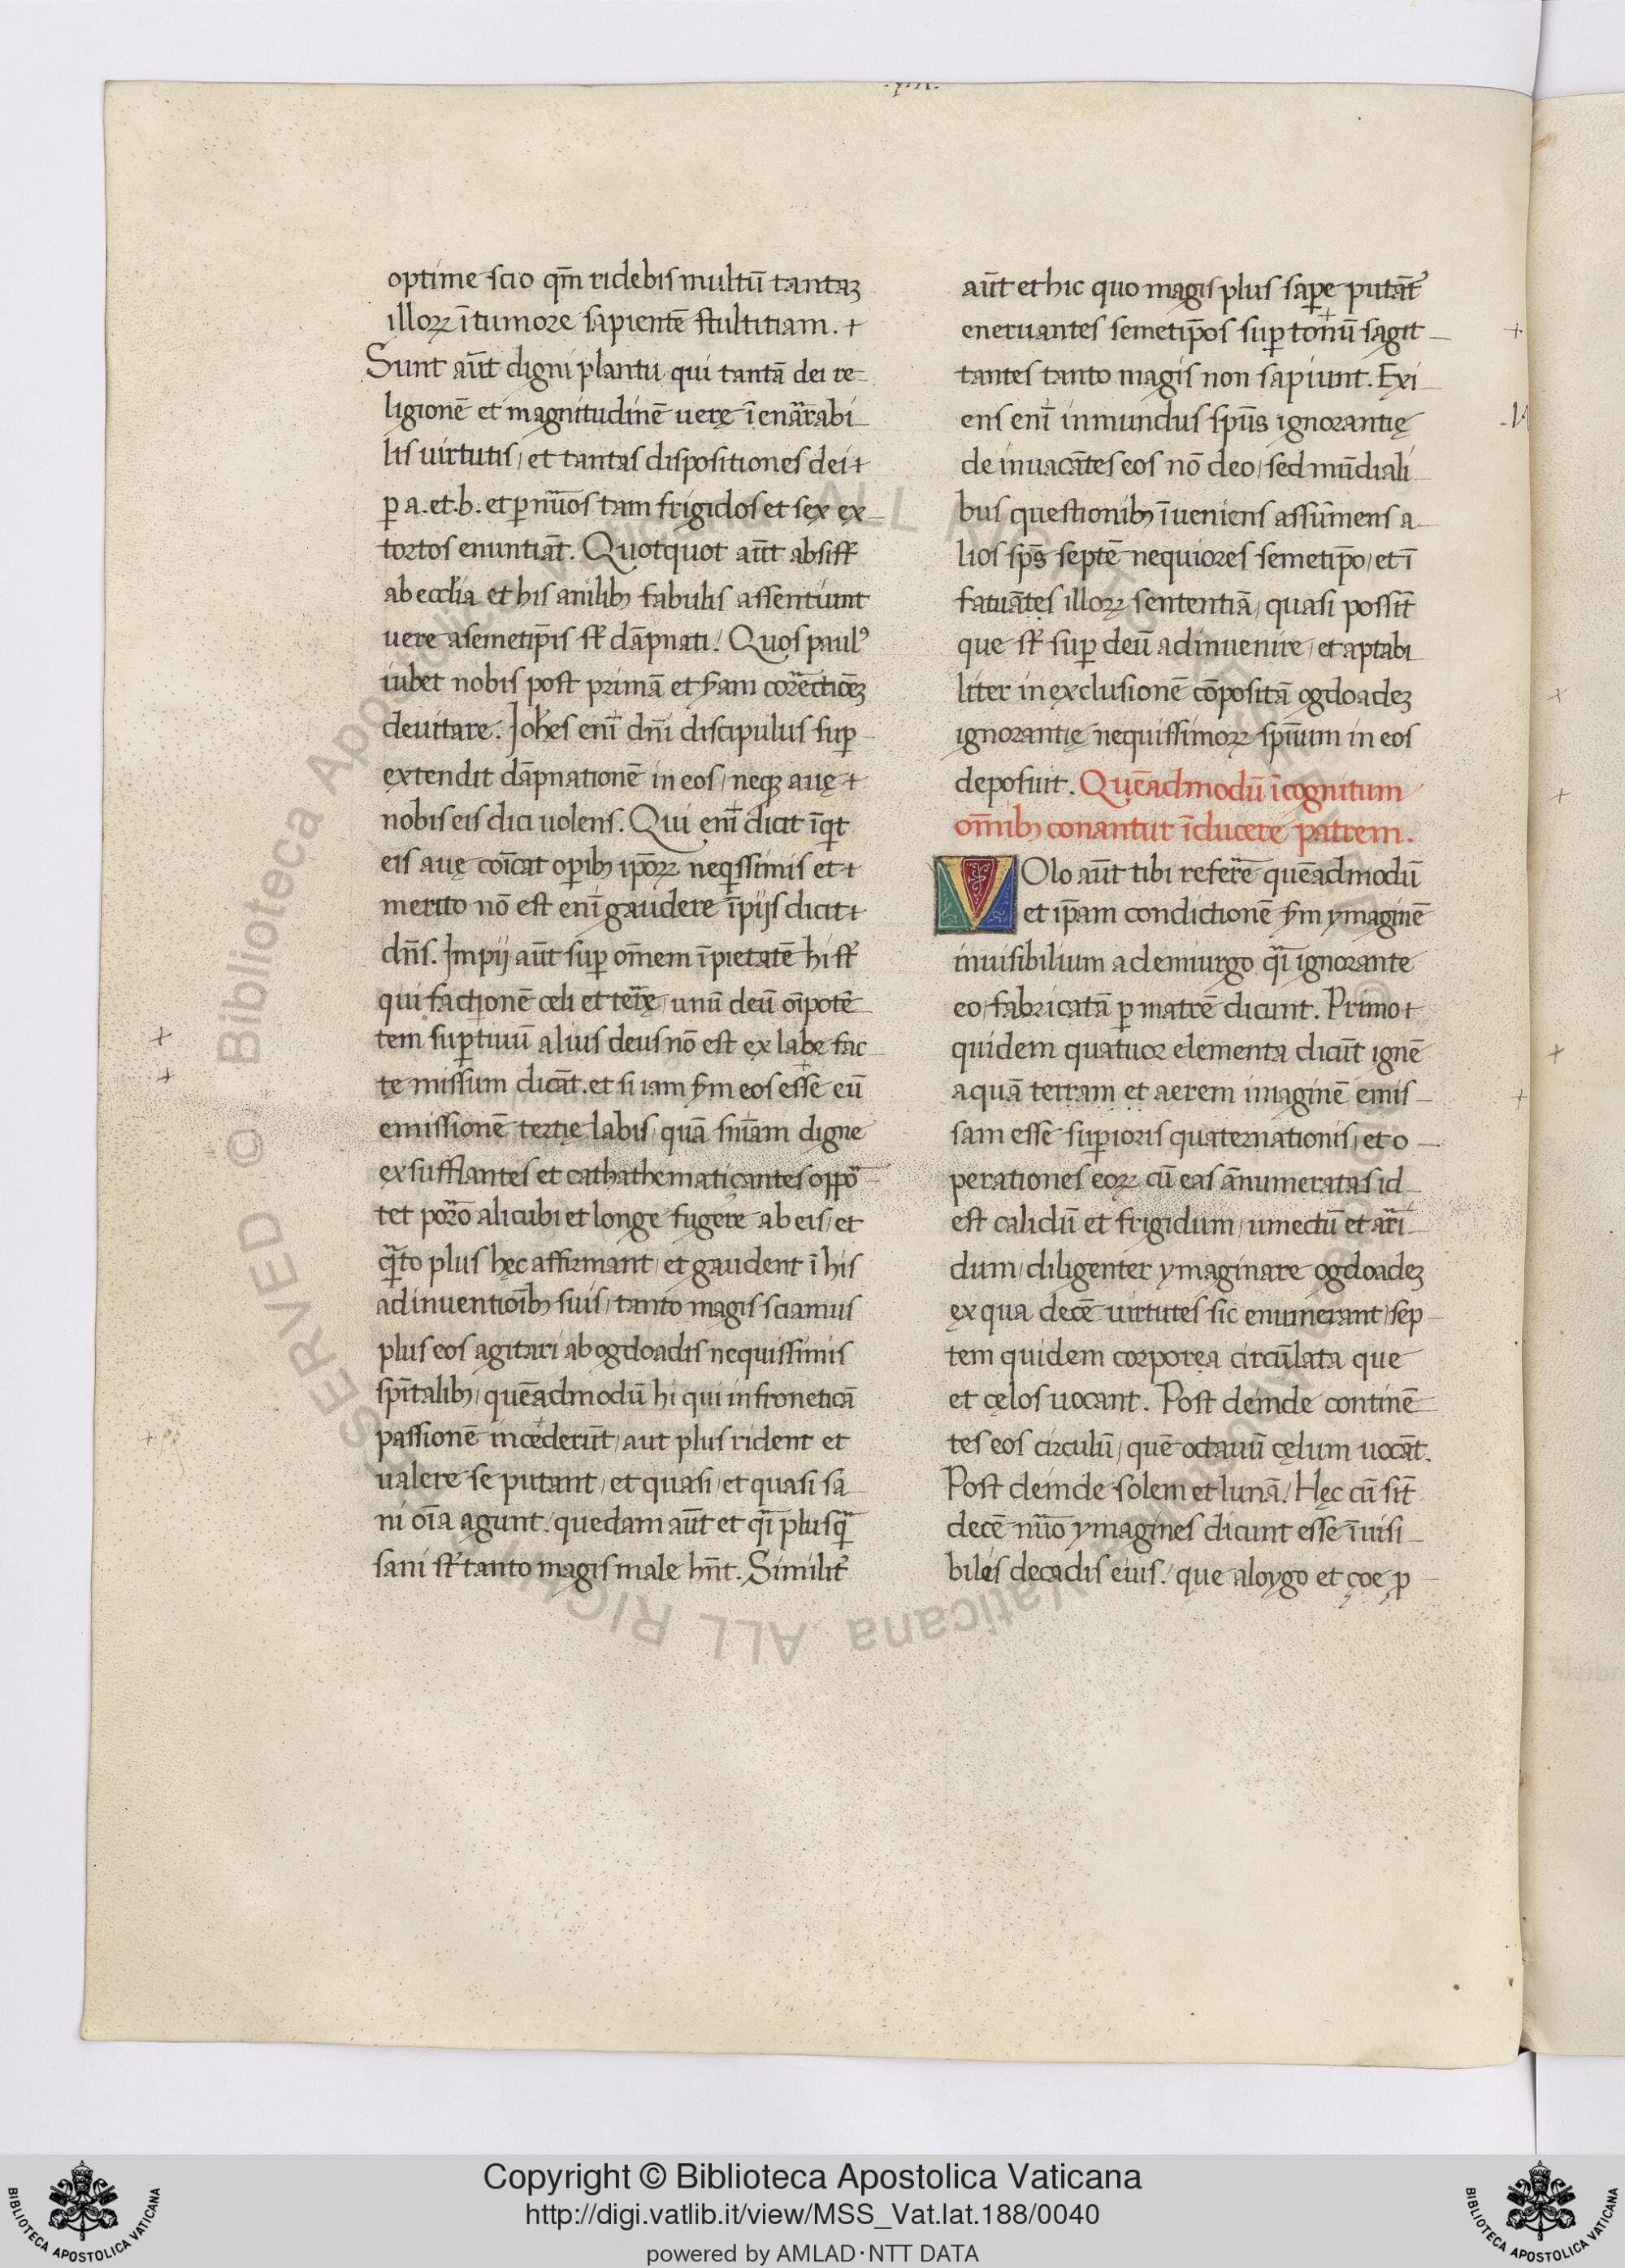 optime scio qm̄ ridebis multū tantaꝫ
illoꝝ ītumore sapientē stultitiam. +
Sunt aūt digni planctu qui tantā dei re
ligionē et magnitudinē uerę īenarrabi
lis uirtutis, et tantas dispositiones dei +
ꝑ a. et. b. et ꝑ nūos tam frigidos et sex ex
tortos enuntiāt. Quotquot aūt absist̄
ab ecclīa et his anilibꝫ fabulis assentiunt
uere asemetip̄is st̄ dāpnati. Quos paulꝰ
iubet nobis post primā et scd̄am corectiōeꝫ
deuitare. Joh̄es enī dn̄i discipulus suꝑ
extendit dāpnationē in eos, neqꝫ auę +
nobis eis dici uolens. Qui enī dicit īqt
eis auę coīcat opibꝫ ip̄oꝝ neqissimis et +
merito nō est enī gaudere īpijs dicit +
dn̄s. Impij aūt suꝑ om̄em īpietatē hi st̄
qui factionē celi et terrę, unū deū oīpotē
tem suꝑ tiuū alius deus nō est ex labe fac
tę missum dicāt. et si iam scd̄m eos esse eū
emissionē tertię labis, quā sniam digne
exsufflantes et cathathematiçantes oppor
tet porro alicubi et longe fugere ab eis, et
qnto plus hęc affirmant, et gaudent ī his
adinuentioībꝫ suis, tanto magis sciamus
plus eos agitari ab ogdoadis nequissimis
spītalibꝫ, quēadmodū hi qui in froneticā
passionē incederūt, aut plus rident et
ualere se putant, et quasi, et quasi sa
ni oīa agunt. quedam aūt et qi plusq
sani st̄ tanto magis male hn̄t. Similit̄
aūt et hic quo magis plus sapere putāt
eneruantes semetip̄os suꝑ tonū sagit
tantes tanto magis non sapiunt. Exi
ens enī inmundus sp̄us ignorantię
de inuacātes eos nō deo, sed mūdiali
bus questionibꝫ īueniens assūmens a
lios sp̄s septē nequiores semetip̄o, et ī
fatuātes illoꝝ sententiā, quasi possīt
que st̄ suꝑ deū adinuenire, et aptabi
liter in exclusionē cōpositā ogdoadeꝫ
ignorantię nequissimoꝝ sp̄iuum in eos
deposuit. Quēadmodū īcognitum
om̄ibꝫ conantur īducere patrem.
VOlo aūt tibi referre quēadmodū
et ip̄am condictionē scd̄m ymaginē
inuisibilium a demiurgo qi ignorante
eo, fabricatā ꝑ matrē dicunt. Primo +
quidem quatuor elementa dicūt ignē
aquā terram et aerem imaginē emis
sam esse supioris quaternationis, et o
perationes eoꝝ cū eas ānumeratas id
est calidū et frigidum, umectū et ari
dum, diligenter ymaginare ogdoadeꝫ
ex qua decē uirtutes sic enumerant, sep
tem quidem corporea circūlata que
et cęlos uocant. Post deinde continē
tes eos circulū, quē octauū cęlum uocāt.
Post deinde solem et lunā. Hęc cū sīt
decē nūo ymagines dicunt esse īuisi
biles decadis eius. que aloygo et çoe ꝑ
Copyright © Biblioteca Apostolica Vaticana
http://digi.vatlib.it/view/MSS_Vat.lat.188/0040
powered by AMLAD·NTT DATA
BIBLIOTECA APOSTOLICA VATICANA
BIBLIOTECA APOSTOLICA VATICANA